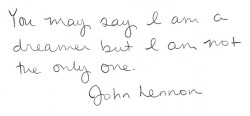 You may say I am a
dreamer but I am not
the only one.
John Lennon